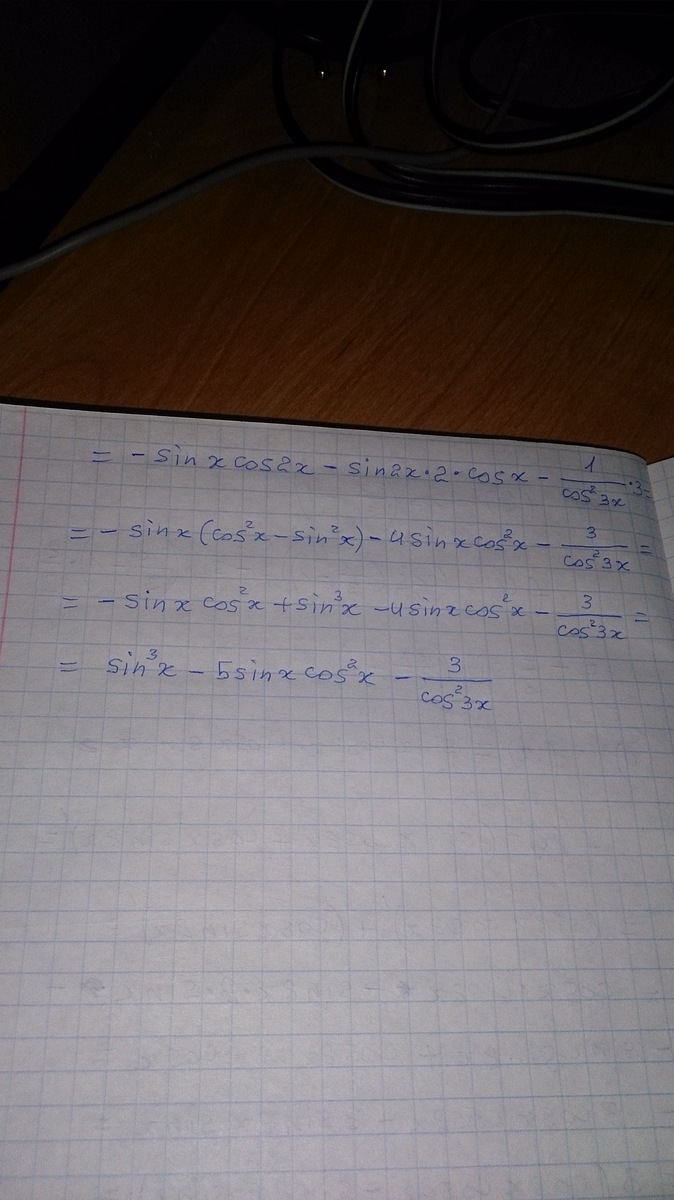 = - sin x cos 2x - sin 2x · 2 · cos x - 1/(cos² 3x) · 3 =
= - sin x (cos² x - sin² x) - 4 sin x cos² x - 3/(cos² 3x) =
= - sin x cos² x + sin³ x - 4 sin x cos² x - 3/(cos² 3x) =
= sin³ x - 5 sin x cos² x - 3/(cos² 3x)